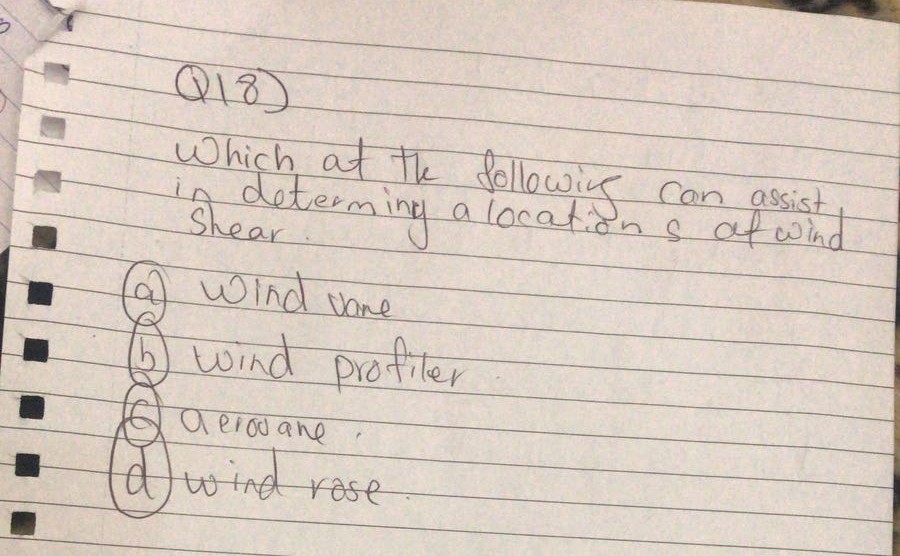 Q18)
Which at the following can assist
in determing a locations at wind
Shear.
a wind vane
b wind profiler.
c aerovane.
d wind rose.